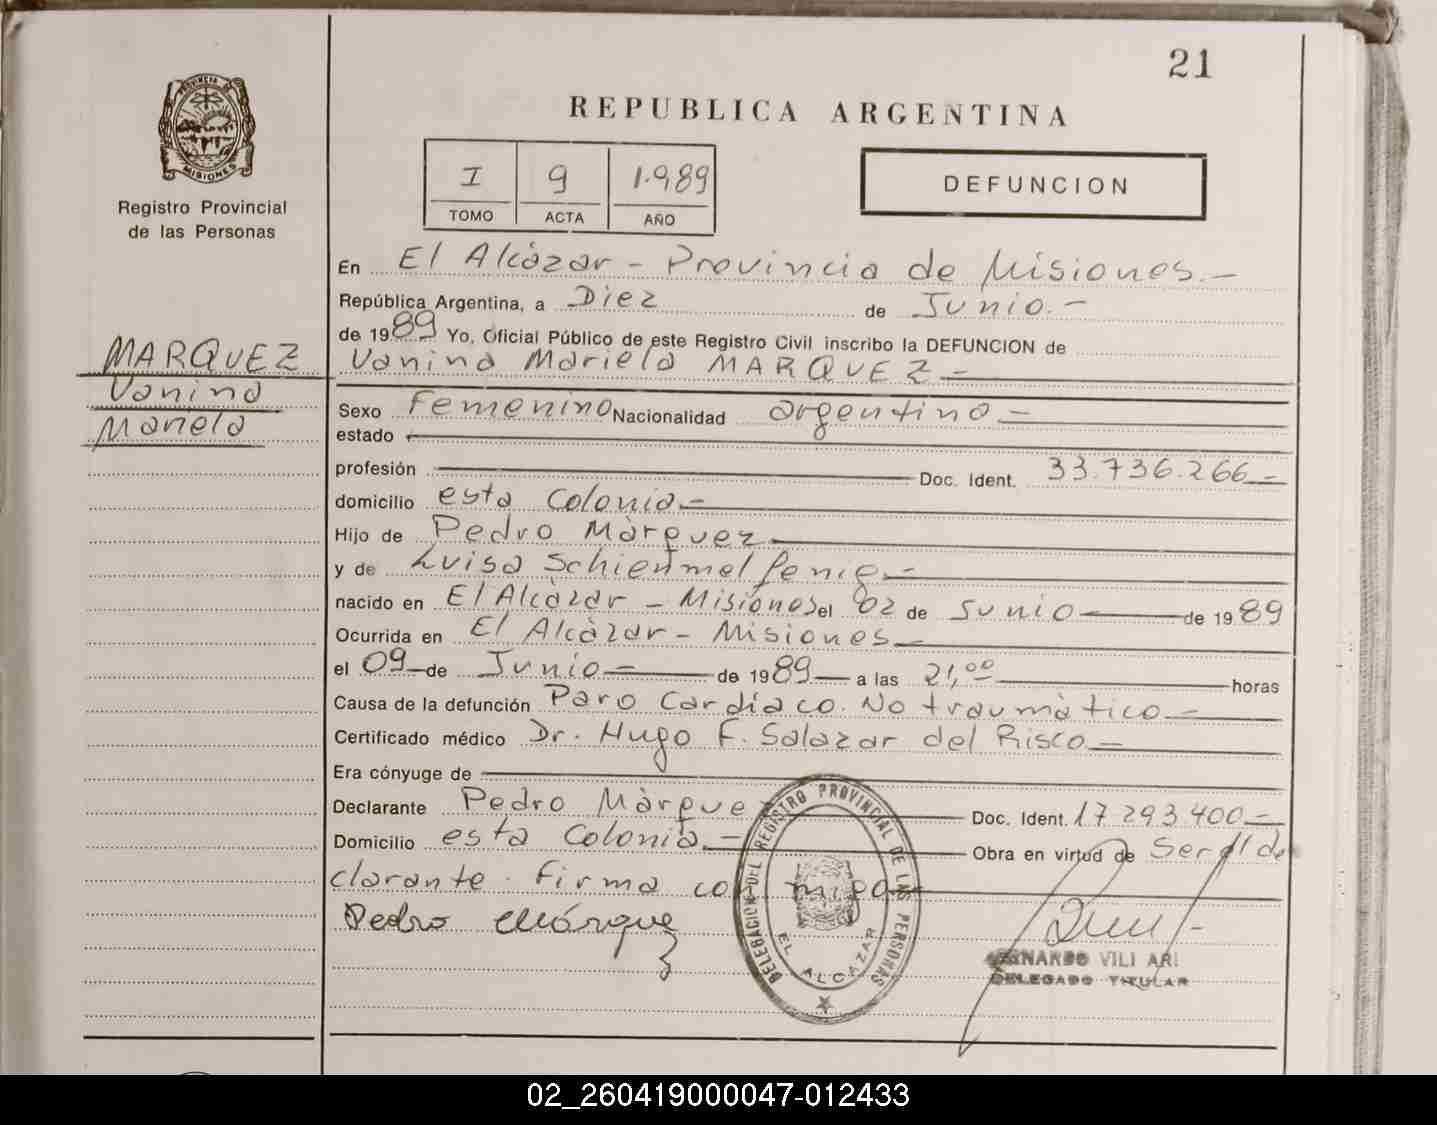 21
REPUBLICA ARGENTINA
PROVINCIA DE
MISIONES
Registro Provincial
de las Personas
I 9 1.989
TOMO ACTA AÑO
DEFUNCION
En El Alcàzar - Provincia de Misiones.-
República Argentina, a Diez de Junio.-
de 1989 Yo, Oficial Público de este Registro Civil inscribo la DEFUNCION de
MARQUEZ
Vanina
Mariela
Vanina Mariela MARQUEZ-
Sexo Femenino Nacionalidad argentina-
estado
profesión Doc. Ident. 33.736.266-
domicilio esta Colonia-
Hijo de Pedro Màrquez
y de Luisa Schiemmelfenig-
nacido en El Alcàzar - Misiones el 02 de Junio de 1989
Ocurrida en El Alcàzar - Misiones
el 09 de Junio- de 1989 a las 21,00 horas
Causa de la defunción Paro Cardíaco. No traumàtico-
Certificado médico Dr. Hugo F. Salazar del Risco-
Era cónyuge de
Declarante Pedro Màrque Doc. Ident. 17.293.400-
Domicilio esta Colonia- Obra en virtud de Ser el de
clarante. Firma con migo-
Pedro Márquez
DELEGACION DEL REGISTRO PROVINCIAL DE LAS PERSONAS
EL ALCAZAR
VILI
DELEGADO TITULAR
02_260419000047-012433